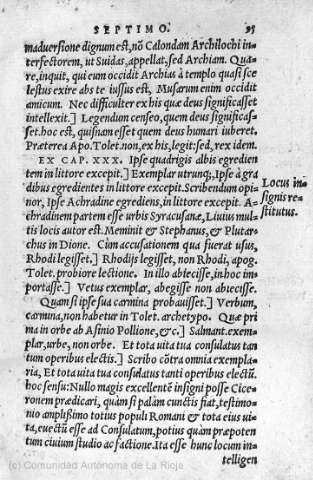 SEPTIMO. 95
maduersione dignum est, nõ Calondam Archilochi in-
terfectorem, ut Suidas, appellat, sed Archiam. Qua-
re, inquit, qui eum occidit Archias à templo quasi sce
lestus exire abs te iussus est, Musarum enim occidit
amicum. Nec difficulter ex his quæ deus significasset
intellexit.] Legendum censeo, quem deus significas-
set. hoc est, quisnam esset quem deus humari iuberet.
Præterea Apo. Tolet. non, ex his, legit: sed, rex idem.
EX CAP. XXX. Ipse quadrigis albis egredien
tem in littore excepit.] Exemplar utrunq;, Ipse à gra
dibus egredientes in littore excepit. Scribendum opi-
nor, Ipse Achradine egrediens, in littore excepit. A-
chradinem partem esse urbis Syracusæ, Liuius mul-
tis locis autor est. Meminit & Stephanus, & Plutar-
chus in Dione. Cùm accusationem qua fuerat usus,
Rhodi legisset.] Rhodijs legisset, non Rhodi, apog.
Tolet. probiore lectione. In illo abtecisse, in hoc im-
portasse.] Vetus exemplar, abegisse non abtecisse.
Quam si ipse sua carmina probauisset.] Verbum,
carmina, non habetur in Tolet. archetypo. Quæ pri
ma in orbe ab Asinio Pollione, &c.] Salmant. exem-
plar, urbe, non orbe. Et tota uita tua consulatus tan
tum operibus electis.] Scribo cõtra omnia exempla-
ria, Et tota uita tua consulatus tanti operibus electũ.
hoc sensu: Nullo magis excellentẽ insigni posse Cice-
ronem prædicari, quàm si palàm cunctis fiat, testimo-
nio amplissimo totius populi Romani & tota eius ui-
ta, euectũ esse ad Consulatum, potius quàm præpoten
tum ciuium studio ac factione. Ita esse hunc locum in-
telligen
Locus in-
signis re-
stitutus.
(c) Comunidad Autónoma de La Rioja